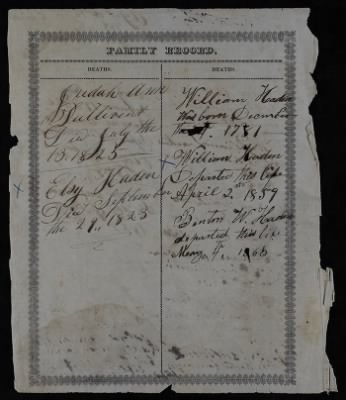 FAMILY RECORD.
DEATHS.
Judah Ann
Bullivint
Died July the
15. 1825
Elsy Haden
Died September
the 29, 1823
DEATHS.
William Haden
Was born December
1781
William Haden
Departed this life
April 2nd 1859
Benton W. Haden
departed this life
May